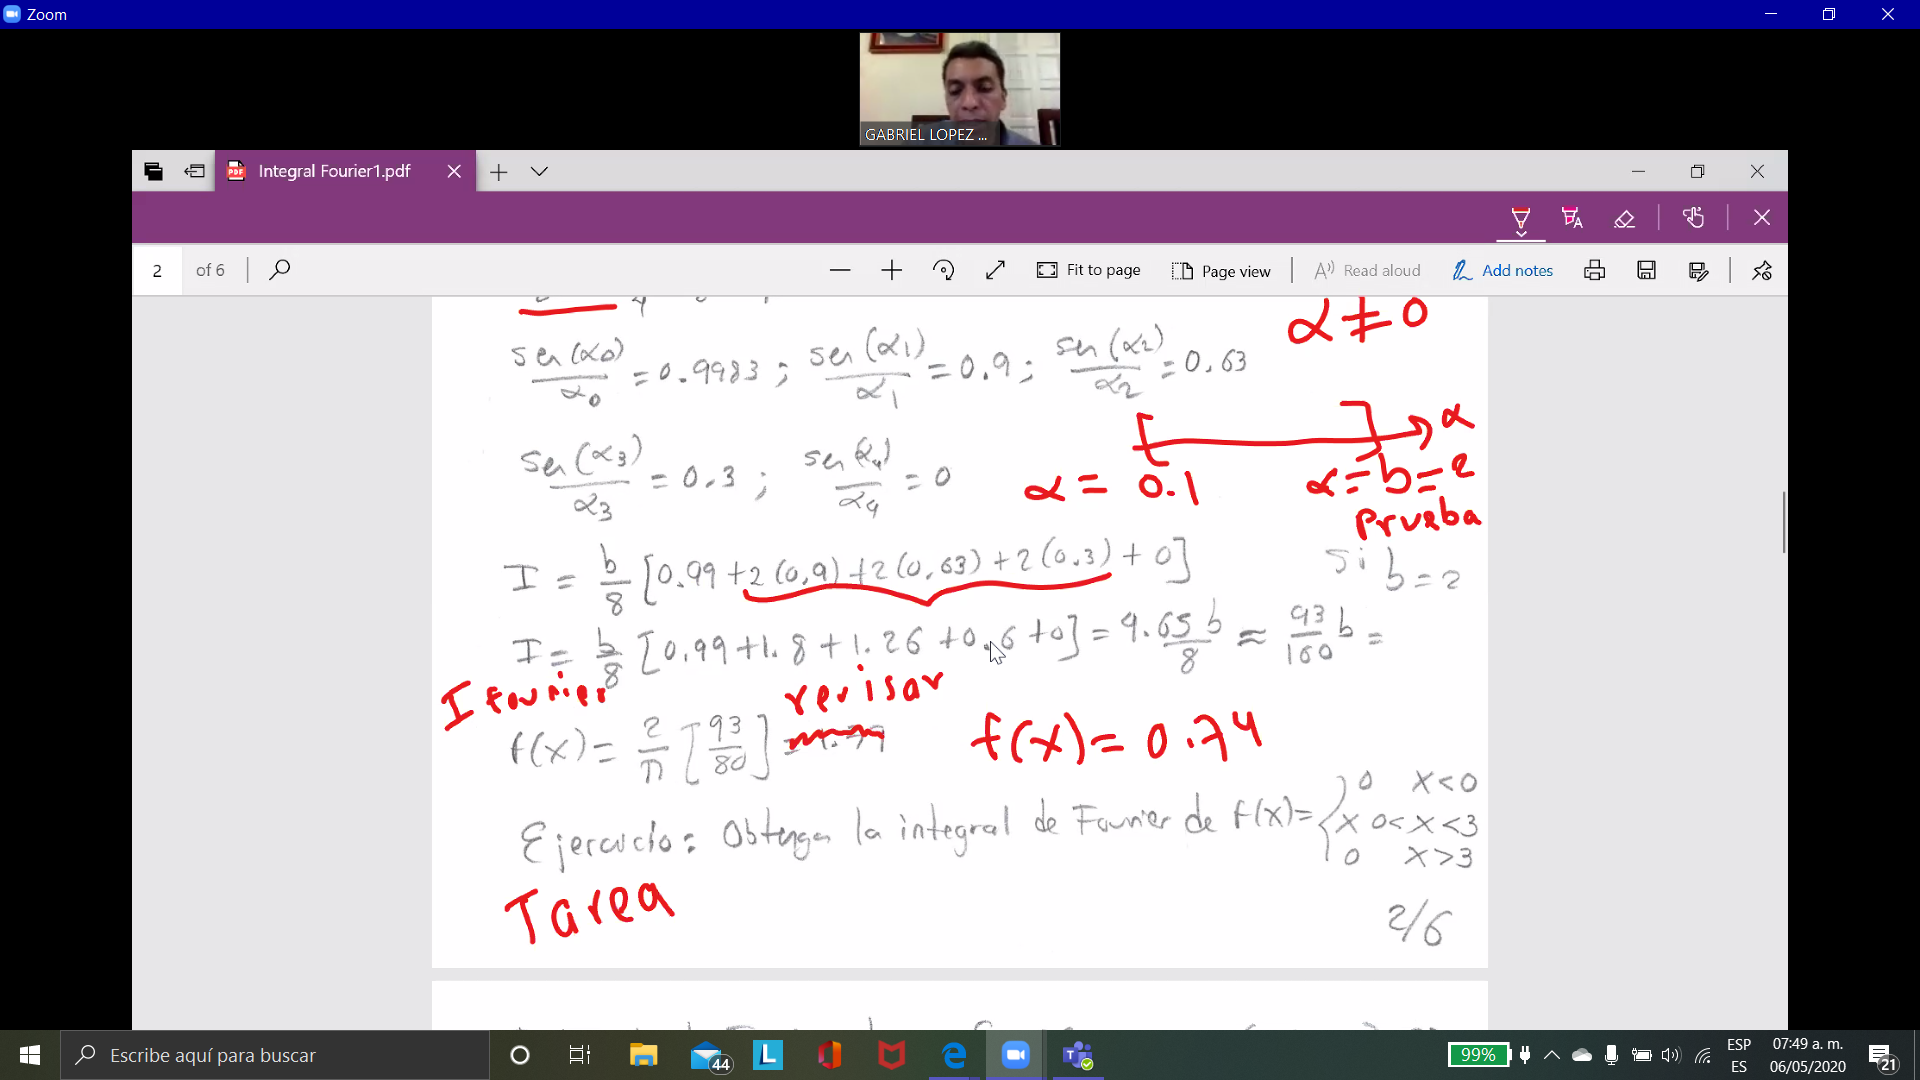 Zoom
GABRIEL LOPEZ ...
Integral Fourier1.pdf
2 of 6
Fit to page
Page view
Read aloud
Add notes
α ≠ 0
sen(α0)/α0 = 0.9983 ; sen(α1)/α1 = 0.9 ; sen(α2)/α2 = 0.63
α
sen(α3)/α3 = 0.3 ; sen(α4)/α4 = 0
α = 0.1
α = b = 2
Prueba
I = b/8 [0.99 + 2(0.9) + 2(0.63) + 2(0.3) + 0]
si b = 2
I = b/8 [0.99 + 1.8 + 1.26 + 0.6 + 0] = 4.65 b/8 ≈ 93/160 b =
I fourier
revisar
f(x) = 2/π [93/80]
f(x) = 0.74
Ejercicio: Obtenga la integral de Fourier de f(x) = { 0 x<0
x 0<x<3
0 x>3
Tarea
2/6
Escribe aquí para buscar
44
99%
ESP
ES
07:49 a. m.
06/05/2020
21